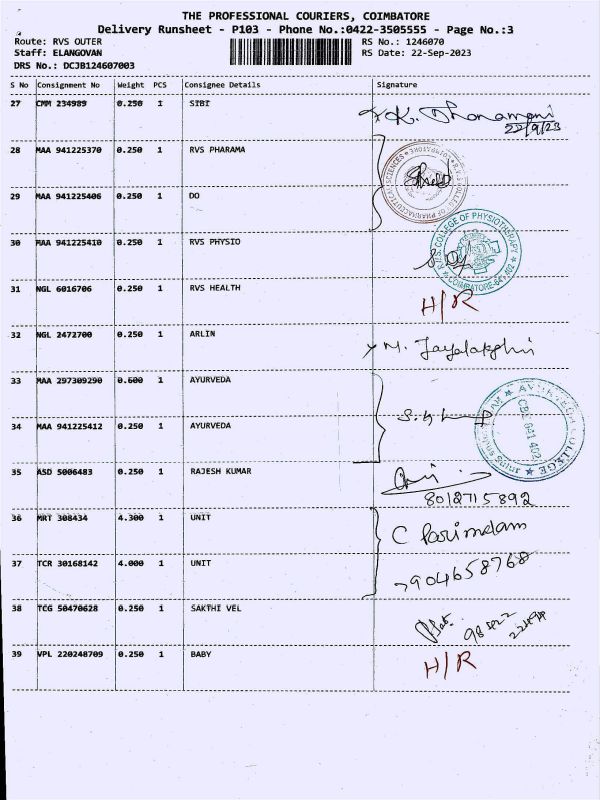 THE PROFESSIONAL COURIERS, COIMBATORE
Delivery Runsheet - P103 - Phone No.:0422-3505555 - Page No.:3
Route: RVS OUTER RS No.: 1246070
Staff: ELANGOVAN RS Date: 22-Sep-2023
DRS No.: DCJB124607003
S No Consignment No Weight PCS Consignee Details Signature
27 CMM 234989 0.250 1 SIBI K. Dhanamani
22/9/23
28 MAA 941225370 0.250 1 RVS PHARAMA
29 MAA 941225406 0.250 1 DO
30 MAA 941225410 0.250 1 RVS PHYSIO
R.V.S. COLLEGE OF PHYSIOTHERAPY
COIMBATORE-641 402
31 NGL 6016706 0.250 1 RVS HEALTH H/R
32 NGL 2472700 0.250 1 ARLIN M. Jayalakshmi
33 MAA 297309290 0.600 1 AYURVEDA
34 MAA 941225412 0.250 1 AYURVEDA
AYURVEDA COLLEGE
CBE 641 402
35 ASD 5006483 0.250 1 RAJESH KUMAR
8012715892
36 MRT 308434 4.300 1 UNIT C Parimalam
37 TCR 30168142 4.000 1 UNIT 7904658768
38 TCG 50470628 0.250 1 SAKTHI VEL
39 VPL 220248709 0.250 1 BABY H/R